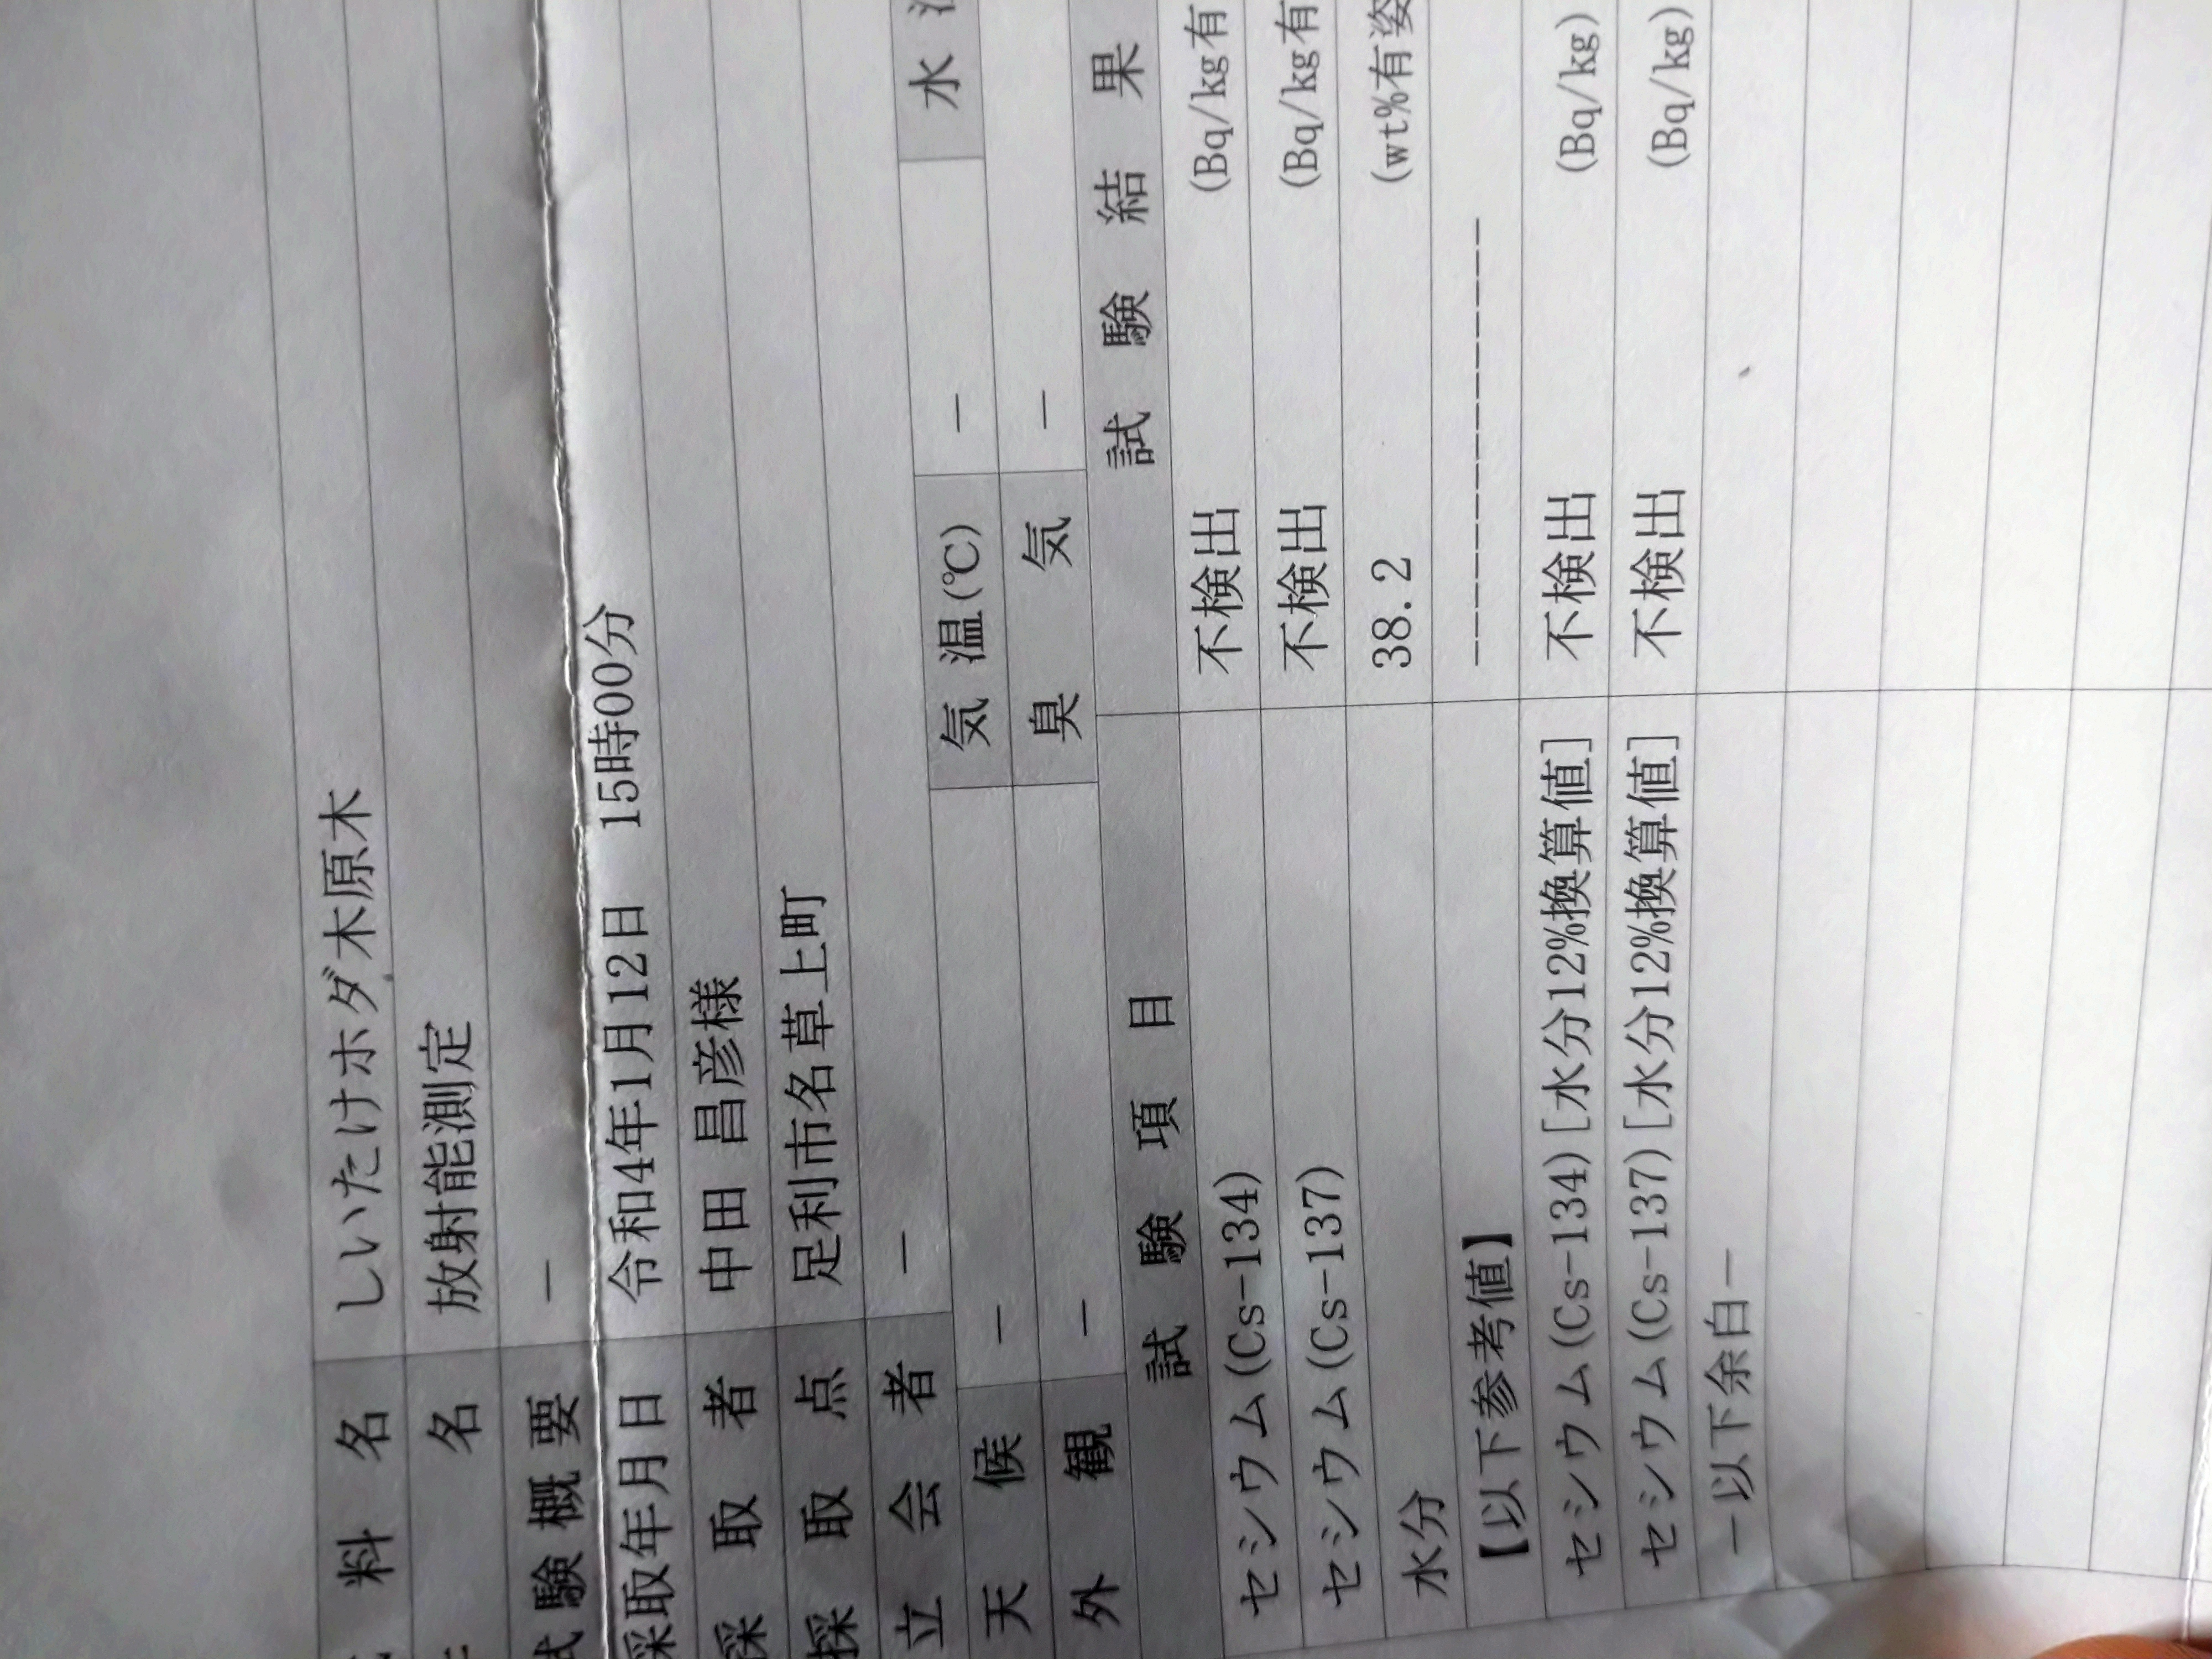 料 名 しいたけホダ木原木
名 放射能測定
試 験 概 要 －
採取年月日 令和4年1月12日 15時00分
採 取 者 中田 昌彦様
採 取 点 足利市名草上町
立 会 者 －
天 候 － 気 温(℃) － 水
外 観 － 臭 気 －
試 験 項 目 試 験 結 果
セシウム(Cs-134) 不検出 (Bq/kg有
セシウム(Cs-137) 不検出 (Bq/kg有
水分 38.2 (wt%有姿
【以下参考値】 ----------------
セシウム(Cs-134)[水分12%換算値] 不検出 (Bq/kg)
セシウム(Cs-137)[水分12%換算値] 不検出 (Bq/kg)
－以下余白－